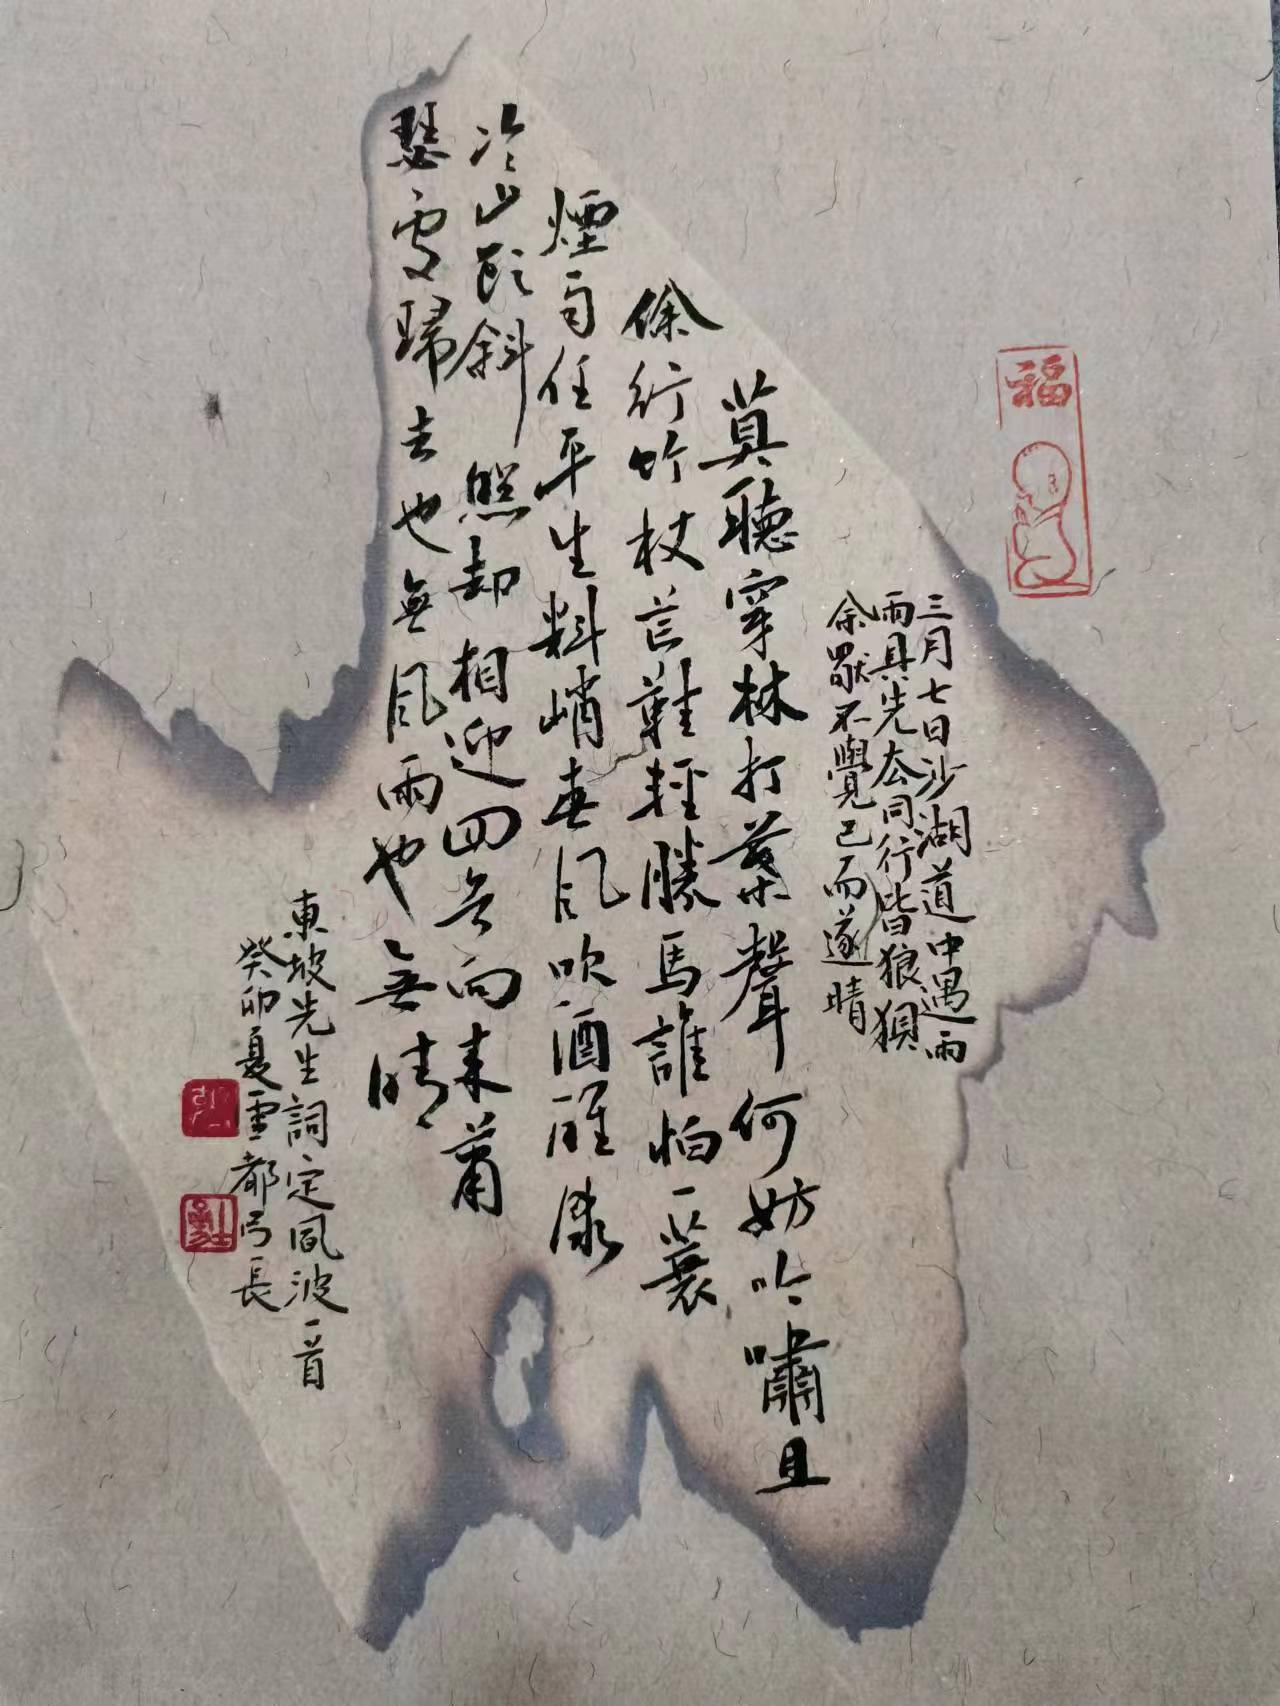 福
三月七日沙湖道中遇雨
雨具先去同行皆狼狽
余獨不覺已而遂晴
莫聽穿林打葉聲何妨吟嘯且
徐行竹杖芒鞋輕勝馬誰怕一蓑
煙雨任平生料峭春風吹酒醒微
冷山頭斜照却相迎回首向来蕭
瑟處歸去也無風雨也無晴
東坡先生詞定風波一首
癸卯夏雩都弓長